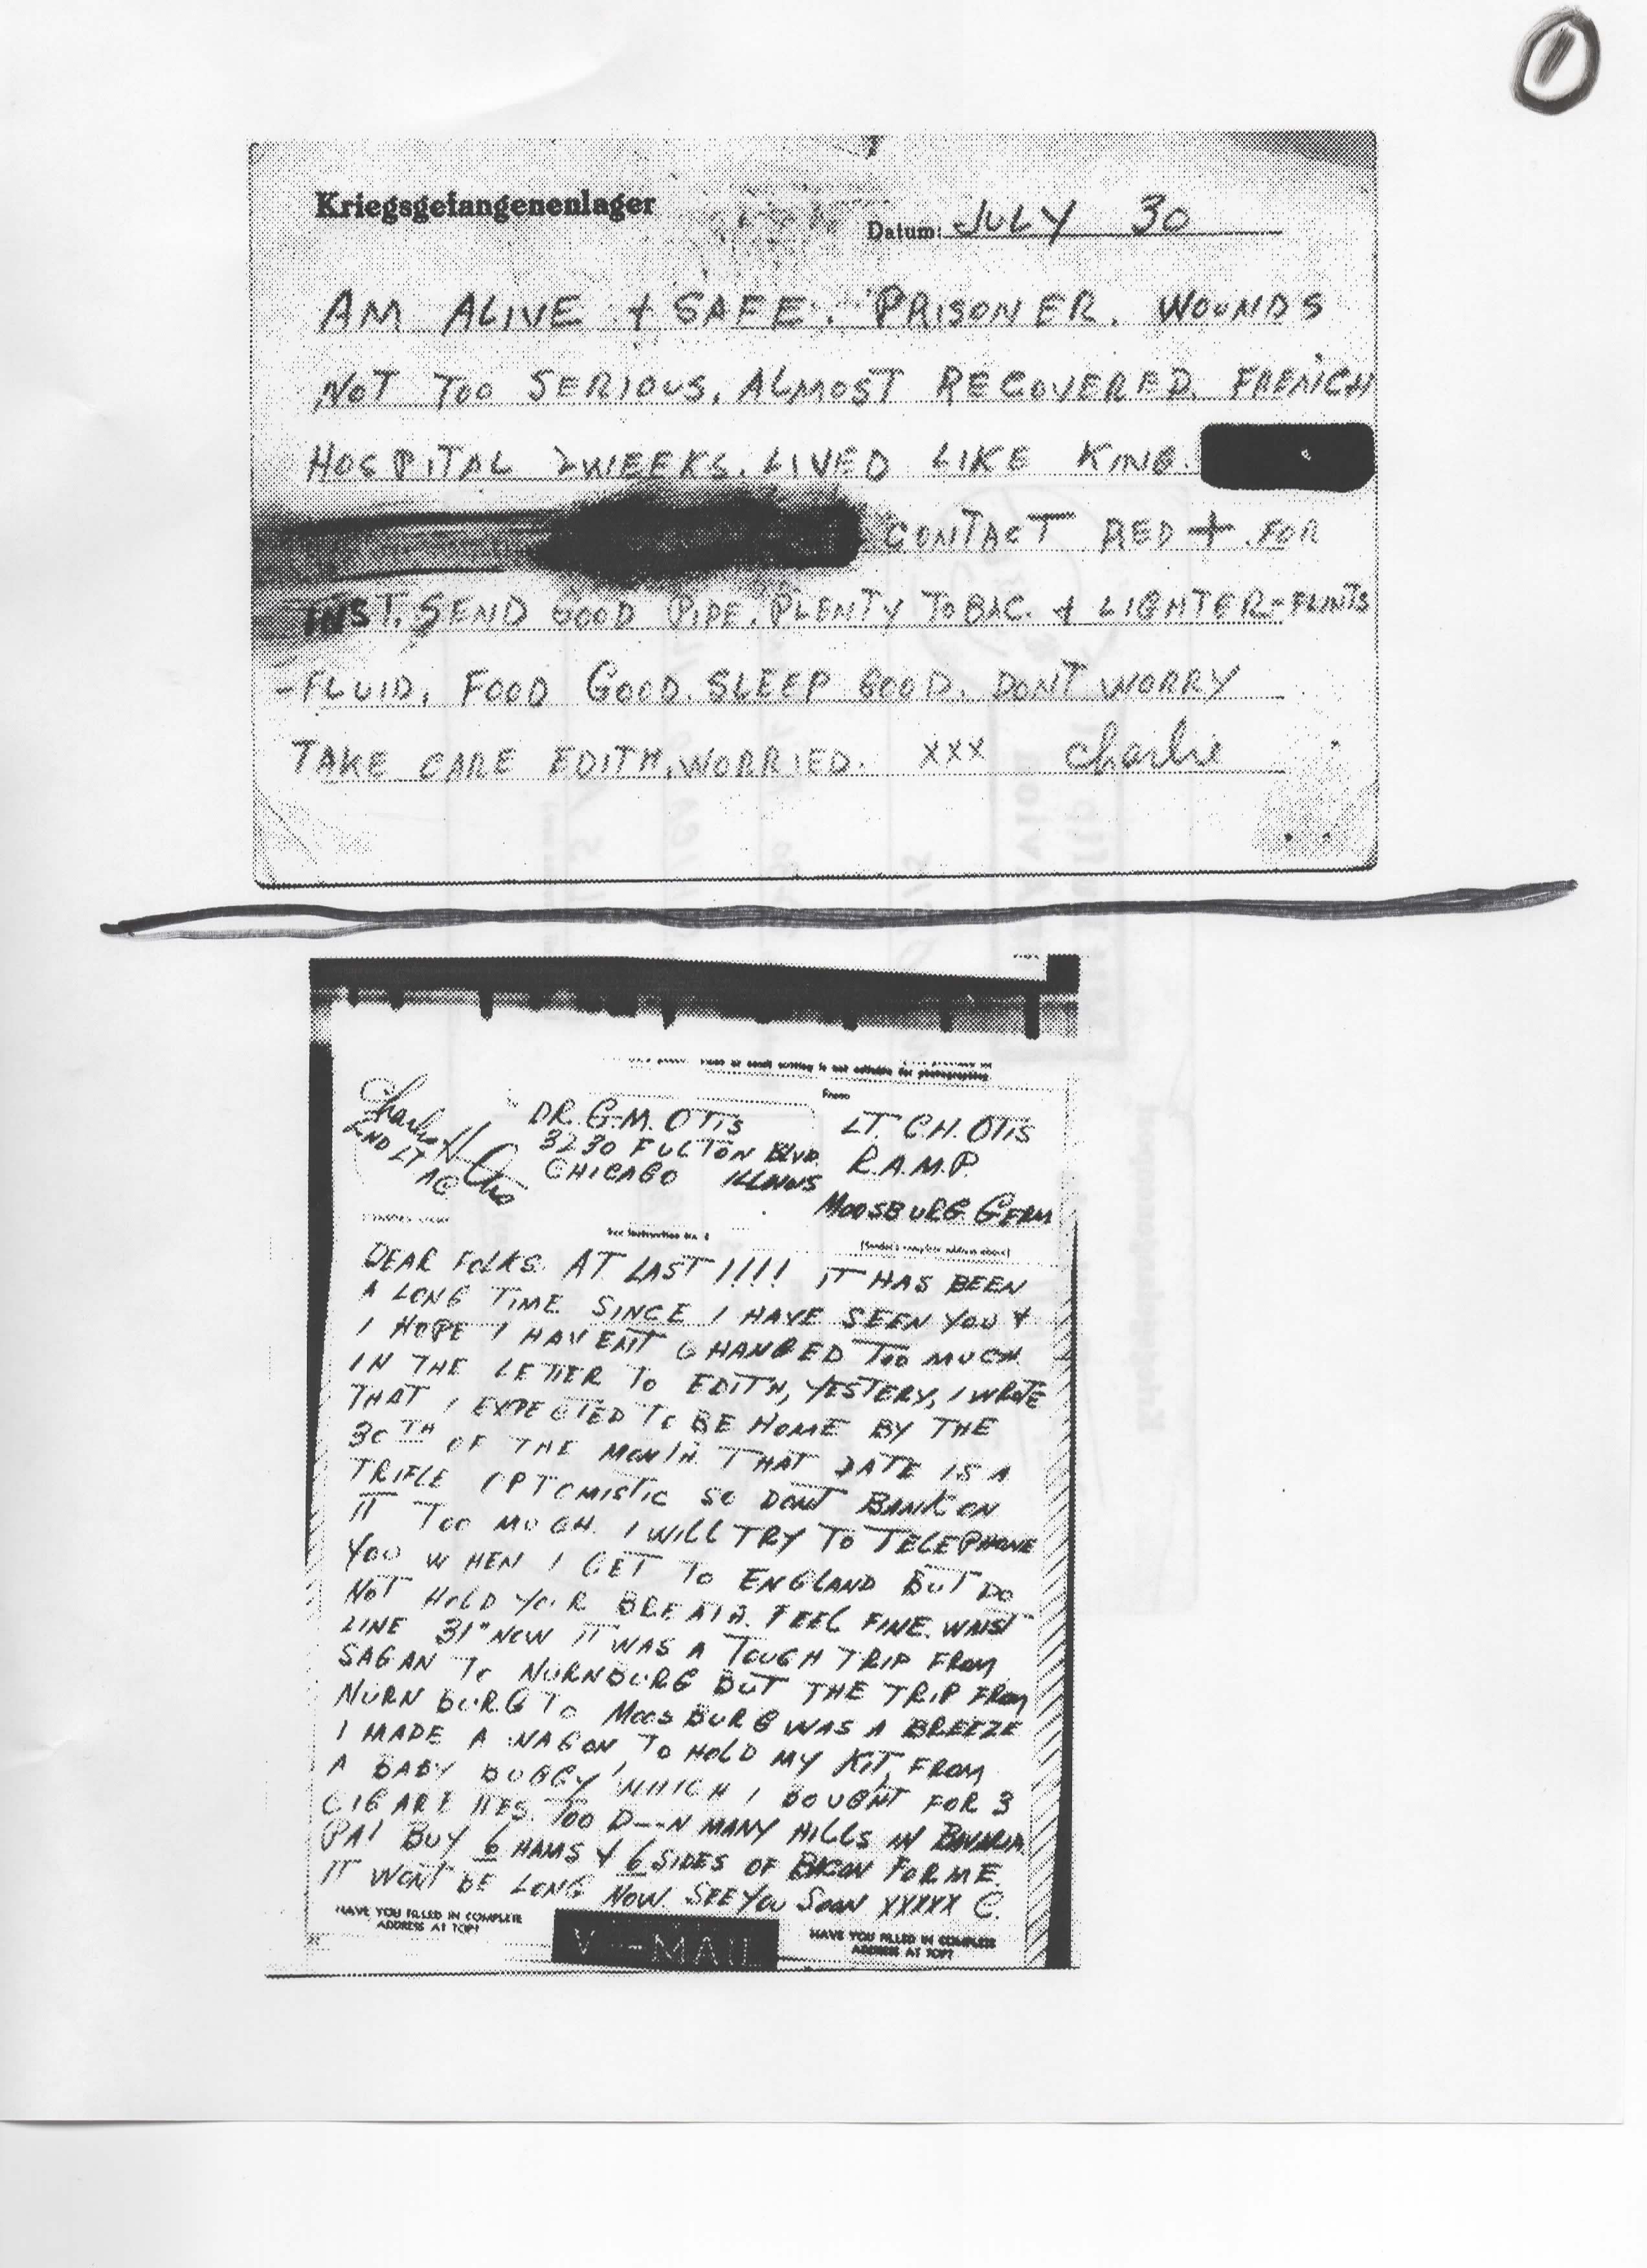 1
Kriegsgefangenenlager
Datum: JULY 30
AM ALIVE + SAFE. PRISONER. WOUNDS
NOT TOO SERIOUS. ALMOST RECOVERED. FRENCH
HOSPITAL 2 WEEKS. LIVED LIKE KING.
CONTACT RED + FOR
INST. SEND GOOD PIPE. PLENTY TOBAC. + LIGHTER-FLINTS
-FLUID. FOOD GOOD. SLEEP GOOD. DONT WORRY
TAKE CARE EDITH. WORRIED. XXX Charlie
or small writing is not suitable for photographing.
From
Charles H Otis
2ND LT AC
DR. G.M. OTIS
3230 FULTON BLVD.
CHICAGO ILLINOIS
LT. C.H. OTIS
R.A.M.P.
MOOSBURG GERM
See Instruction No. 2
(Sender's complete address above)
DEAR FOLKS. AT LAST !!!! IT HAS BEEN
A LONG TIME SINCE I HAVE SEEN YOU &
I HOPE I HAVENT CHANGED TOO MUCH
IN THE LETTER TO EDITH, YESTERY, I WROTE
THAT I EXPECTED TO BE HOME BY THE
30TH OF THE MONTH. THAT DATE IS A
TRIFLE OPTOMISTIC SO DONT BANK ON
IT TOO MUCH. I WILL TRY TO TELEPHONE
YOU WHEN I GET TO ENGLAND BUT DO
NOT HOLD YOUR BREATH. FEEL FINE. WAIST
LINE 31" NOW IT WAS A TOUGH TRIP FROM
SAGAN TO NURNBURG BUT THE TRIP FROM
NURNBURG TO MOOSBURG WAS A BREEZE
I MADE A WAGON TO HOLD MY KIT, FROM
A BABY BUGGY WHICH I BOUGHT FOR 3
CIGARETTES. TOO D---N MANY HILLS IN BAVARIA.
PA! BUY 6 HAMS & 6 SIDES OF BACON FOR ME.
IT WONT BE LONG NOW. SEE YOU SOON XXXXX C.
HAVE YOU FILLED IN COMPLETE
ADDRESS AT TOP?
V---MAIL
HAVE YOU FILLED IN COMPLETE
ADDRESS AT TOP?